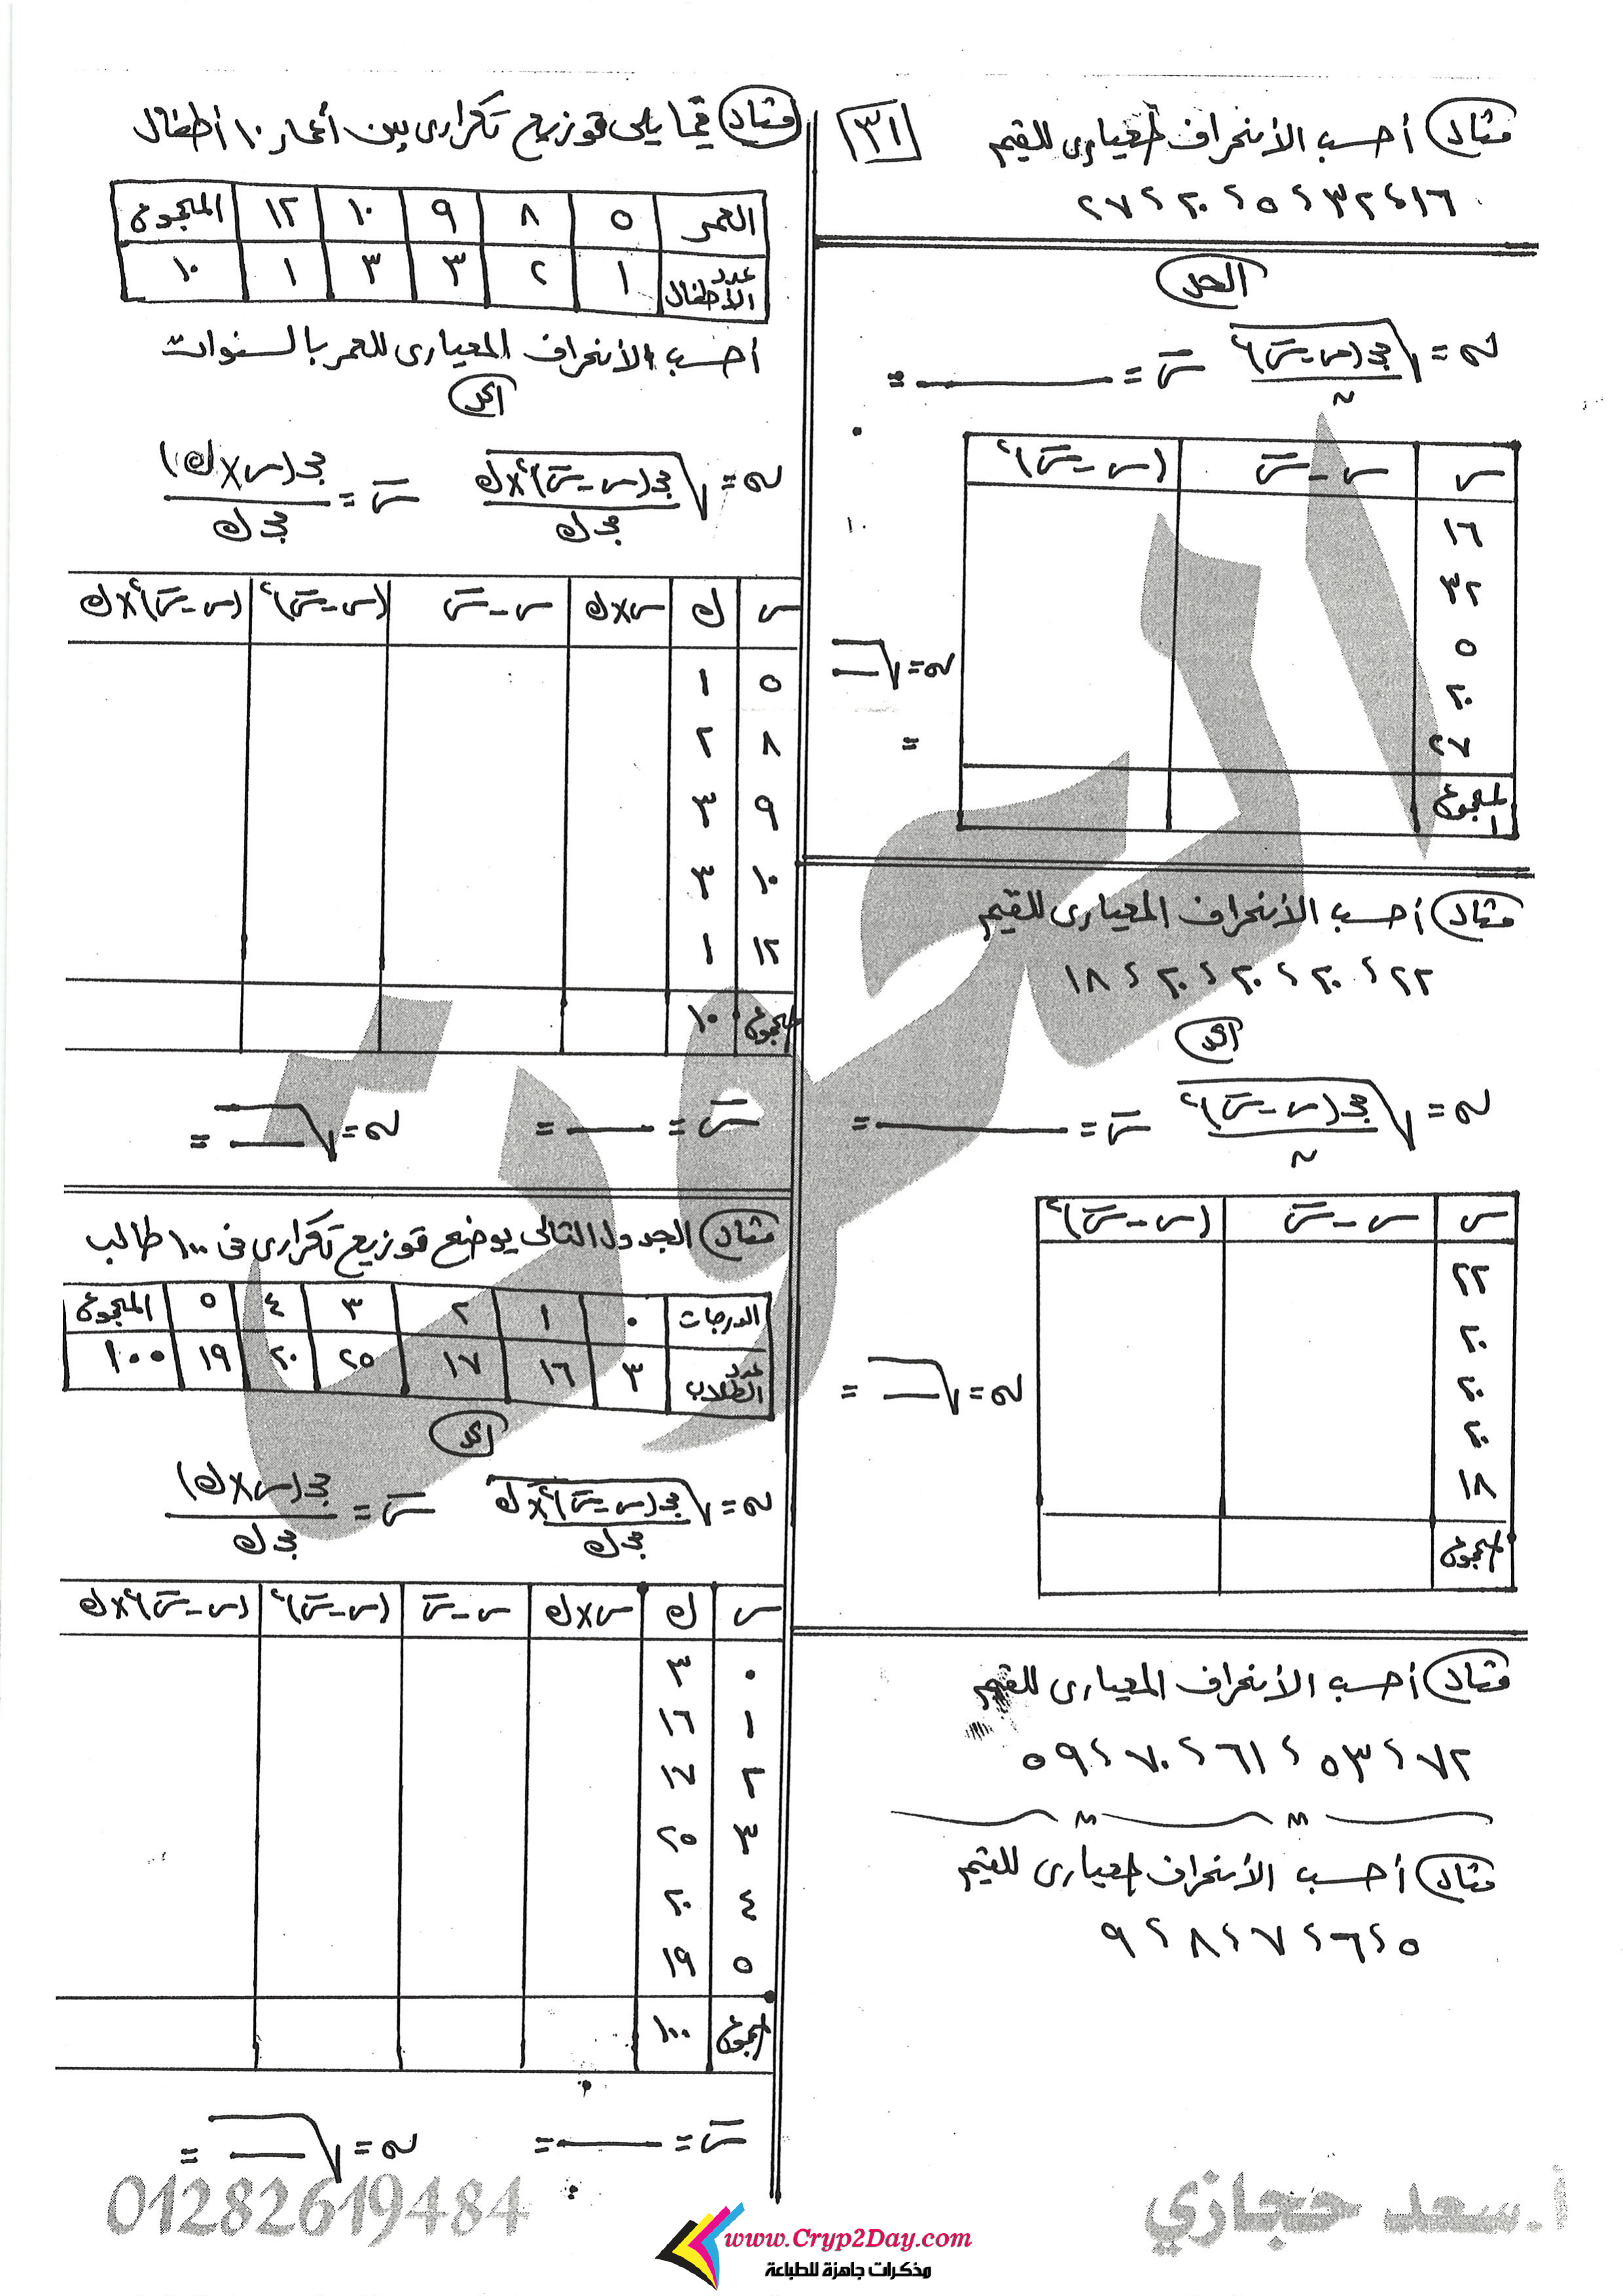 ٣١
مثال أحسب الأنحراف المعيارى للقيم
١٦ ، ٣٢ ، ٥ ، ٢٠ ، ٢٧
الحل
σ = √(مجـ(س - س̄)² / ن) س̄ = ــــــ =
س | س - س̄ | (س - س̄)²
١٦
٣٢
٥
٢٠
٢٧
المجموع
σ = √ــــ
=
مثال أحسب الأنحراف المعيارى للقيم
٢٢ ، ٢٠ ، ٢٠ ، ٢٠ ، ١٨
الحل
σ = √(مجـ(س - س̄)² / ن) س̄ = ــــــ =
س | س - س̄ | (س - س̄)²
٢٢
٢٠
٢٠
٢٠
١٨
المجموع
σ = √ــــ =
مثال أحسب الأنحراف المعيارى للقيم
٧٢ ، ٥٣ ، ٦١ ، ٧٠ ، ٥٩
مثال أحسب الأنحراف المعيارى للقيم
٥ ، ٦ ، ٧ ، ٨ ، ٩
مثال فيما يلى توزيع تكرارى بين أعمار ١٠ أطفال
العمر | ٥ | ٨ | ٩ | ١٠ | ١٢ | المجموع
عدد الأطفال | ١ | ٢ | ٣ | ٣ | ١ | ١٠
أحسب الأنحراف المعيارى للعمر بالسنوات
الحل
σ = √(مجـ(س - س̄)² × ك / مجـ ك) س̄ = مجـ(س × ك) / مجـ ك
س | ك | س × ك | س - س̄ | (س - س̄)² | (س - س̄)² × ك
٥ | ١
٨ | ٢
٩ | ٣
١٠ | ٣
١٢ | ١
المجموع | ١٠
س̄ = ــــ = σ = √ــــ =
مثال الجدول التالى يوضح توزيع تكرارى فى ١٠٠ طالب
الدرجات | ٠ | ١ | ٢ | ٣ | ٤ | ٥ | المجموع
عدد الطلاب | ٣ | ١٦ | ١٧ | ٢٥ | ٢٠ | ١٩ | ١٠٠
الحل
σ = √(مجـ(س - س̄)² × ك / مجـ ك) س̄ = مجـ(س × ك) / مجـ ك
س | ك | س × ك | س - س̄ | (س - س̄)² | (س - س̄)² × ك
٠ | ٣
١ | ١٦
٢ | ١٧
٣ | ٢٥
٤ | ٢٠
٥ | ١٩
المجموع | ١٠٠
س̄ = ــــ = σ = √ــــ =
أ.سعد حجازي
01282619484
www.Cryp2Day.com
مذكرات جاهزة للطباعة